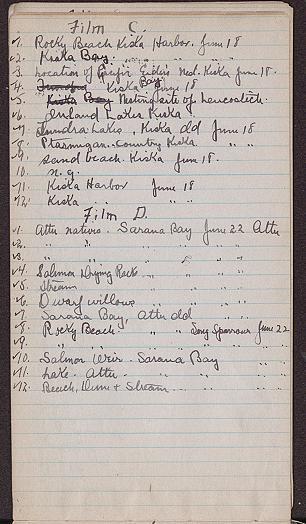 Film C.
1. Rocky Beach Kiska Harbor. June 18
2. Kiska Bay. " " "
3. Location of Pacific Eider's Nest. Kiska June 18.
4. Kiska Bay June 18
5. Kiska Bay Nesting site of Leucosticte.
6. Inland Lakes Kiska
7. Tundra Lakes, Kiska dd June 18
8. Ptarmigan country Kiska " "
9. Sand beach. Kiska June 18.
10. n.g.
11. Kiska Harbor June 18
12. Kiska " "
Film D.
1. Attu natives. Sarana Bay June 22 Attu
2. " " " " "
3. " " " " "
4. Salmon Drying Racks " " "
5. Stream " " "
6. Dwarf willows " " "
7. Sarana Bay, Attu dd " "
8. Rocky Beach. " " Song Sparrow June 22
9. " " " " " "
10. Salmon Weir. Sarana Bay " "
11. Lake. Attu. " " "
12. Beach, Dune & Stream " " "